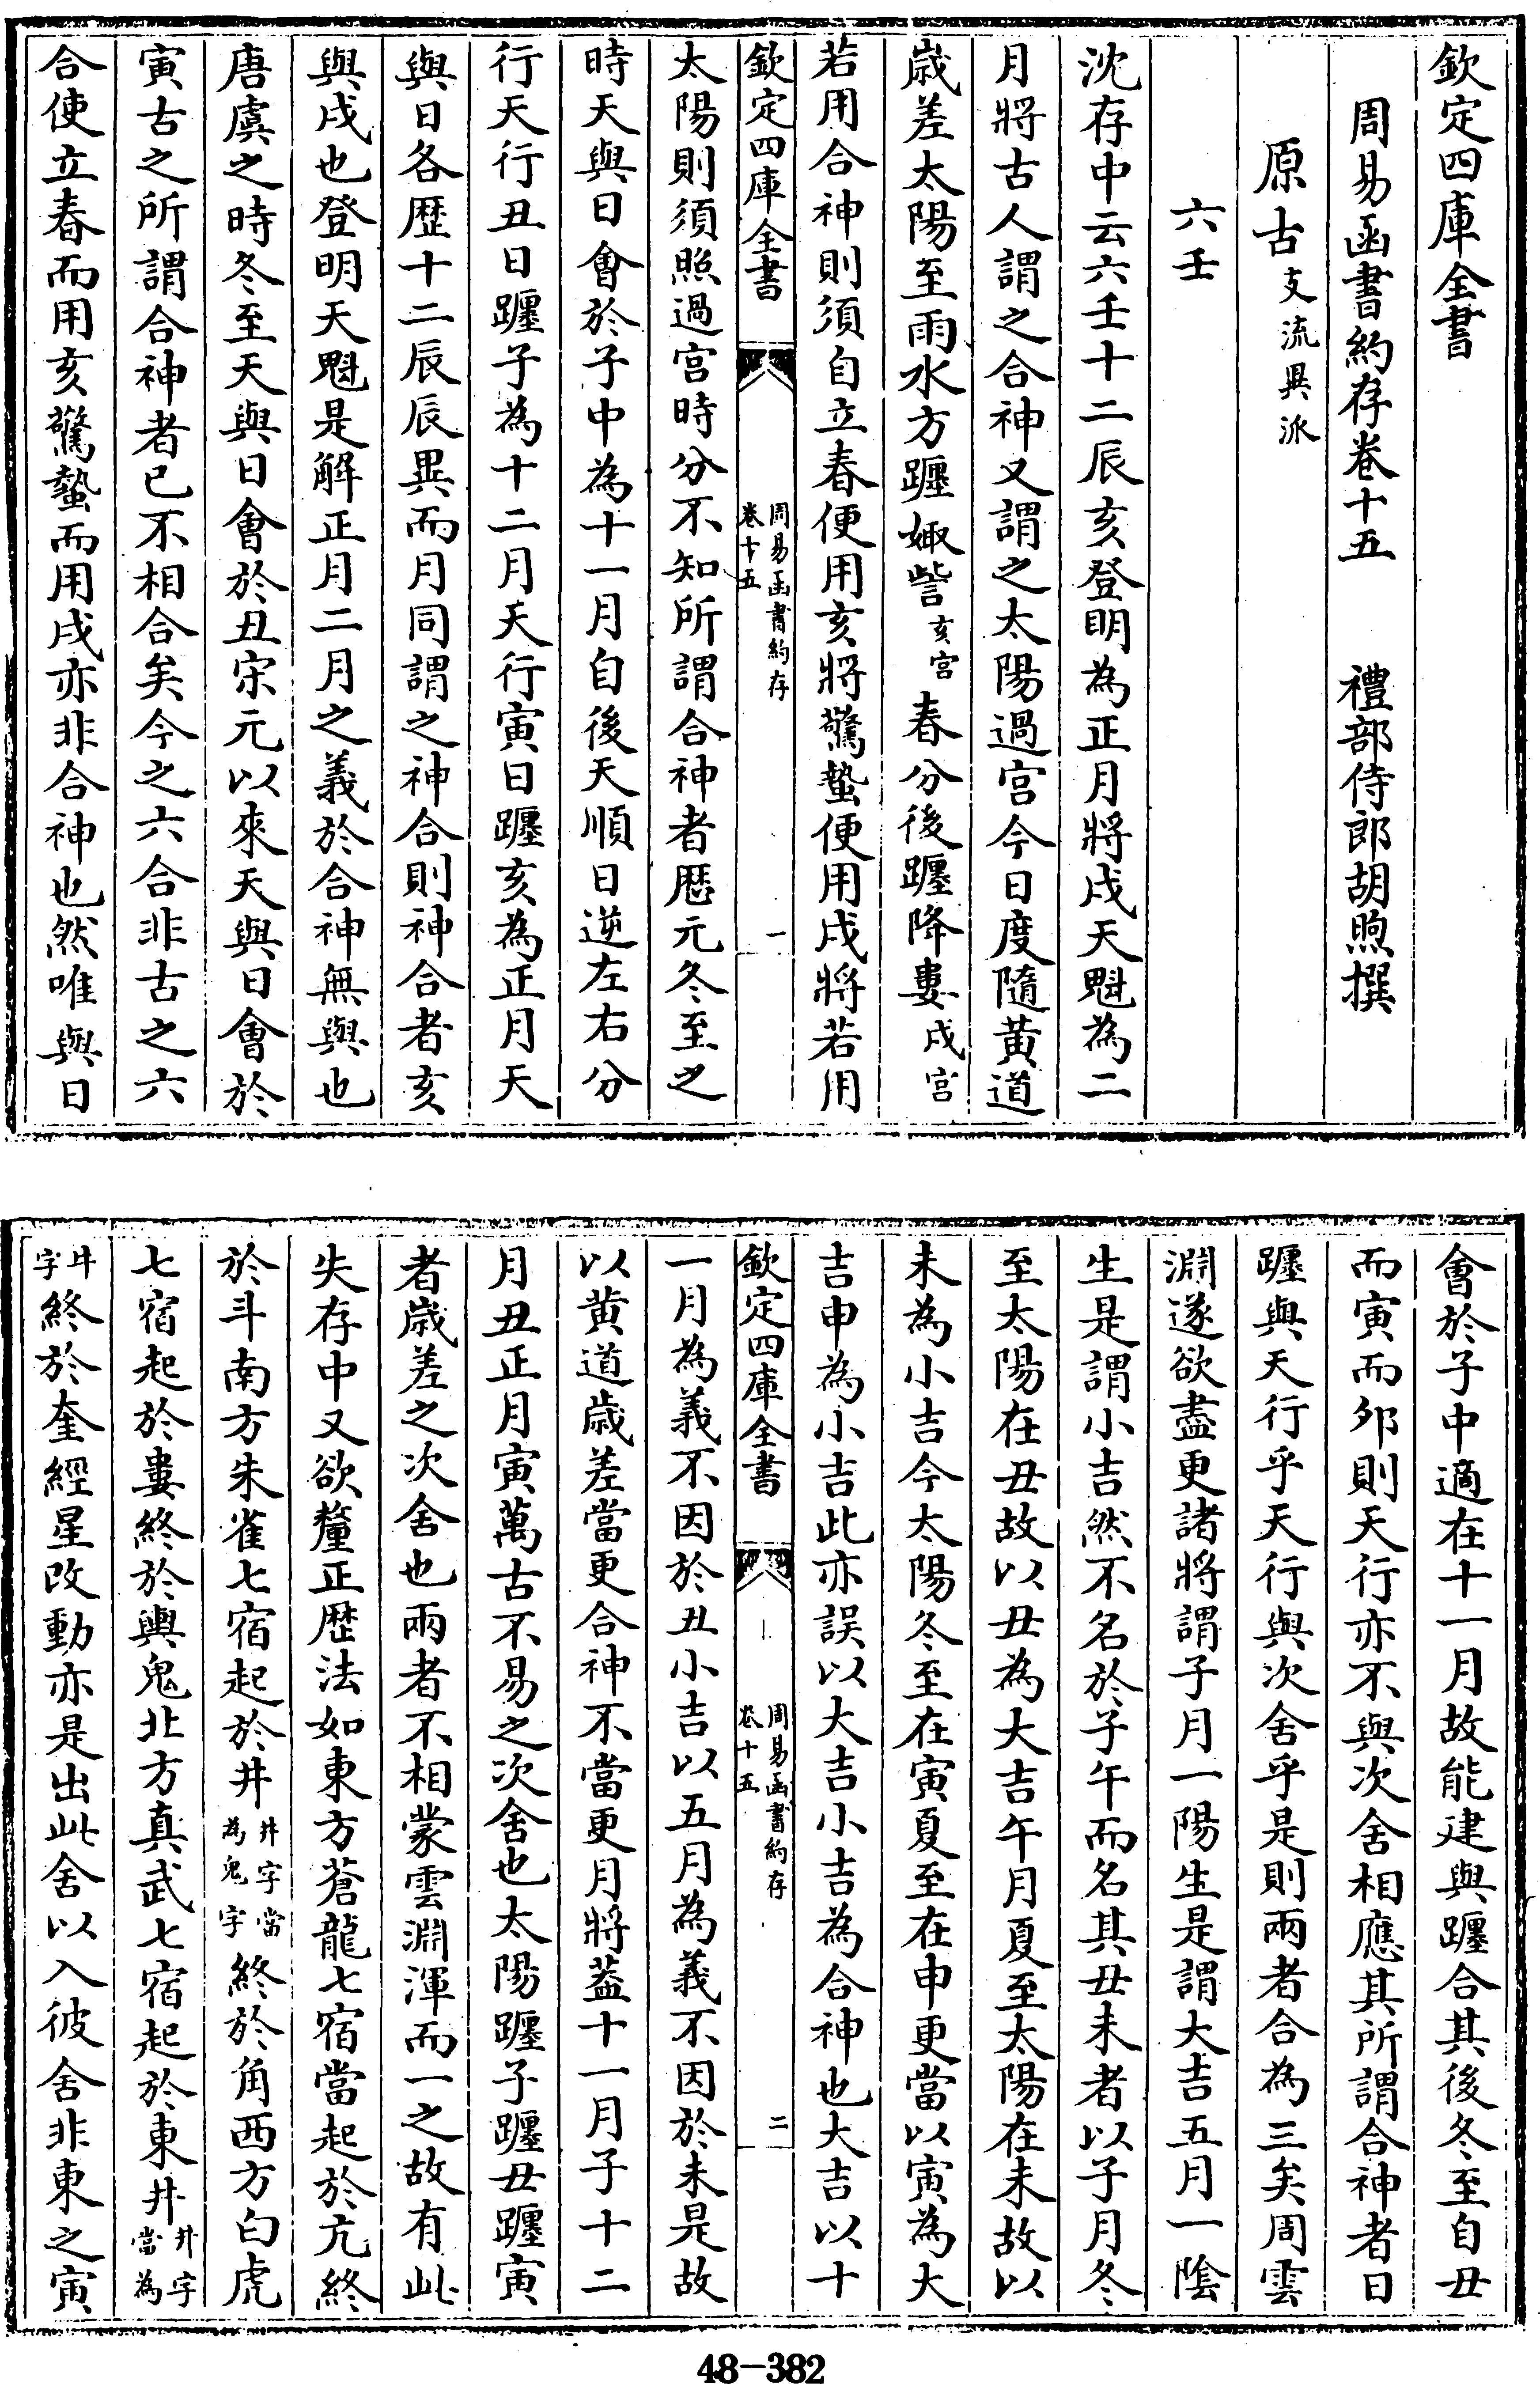 欽定四庫全書
周易函書約存卷十五　　禮部侍郎胡煦撰
原古支流異派
六壬
沈存中云六壬十二辰亥登明為正月將戌天魁為二
月將古人謂之合神又謂之太陽過宫今日度隨黃道
歲差太陽至雨水方躔娵訾亥宫春分後躔降婁戌宫
若用合神則須自立春便用亥將驚蟄便用戌將若用
欽定四庫全書　周易函書約存卷十五　一
太陽則須照過宫時分不知所謂合神者歴元冬至之
時天與日會於子中為十一月自後天順日逆左右分
行天行丑日躔子為十二月天行寅日躔亥為正月天
與日各歴十二辰辰異而月同謂之神合則神合者亥
與戌也登明天魁是解正月二月之義於合神無與也
唐虞之時冬至天與日會於丑宋元以來天與日會於
寅古之所謂合神者已不相合矣今之六合非古之六
合使立春而用亥驚蟄而用戌亦非合神也然唯與日
會於子中適在十一月故能建與躔合其後冬至自丑
而寅而夘則天行亦不與次舍相應其所謂合神者日
躔與天行乎天行與次舍乎是則兩者合為三矣周雲
淵遂欲盡更諸將謂子月一陽生是謂大吉五月一陰
生是謂小吉然不名於子午而名其丑未者以子月冬
至太陽在丑故以丑為大吉午月夏至太陽在未故以
未為小吉今太陽冬至在寅夏至在申更當以寅為大
吉申為小吉此亦誤以大吉小吉為合神也大吉以十
欽定四庫全書　周易函書約存卷十五　二
一月為義不因於丑小吉以五月為義不因於未是故
以黄道歲差當更合神不當更月將葢十一月子十二
月丑正月寅萬古不易之次舍也太陽躔子躔丑躔寅
者歲差之次舍也兩者不相蒙雲淵渾而一之故有此
失存中又欲釐正歴法如東方蒼龍七宿當起於亢終
於斗南方朱雀七宿起於井井字當為鬼字終於角西方白虎
七宿起於婁終於輿鬼北方真武七宿起於東井井字當為
牛字終於奎經星改動亦是出此舍以入彼舍非東之寅
48-382